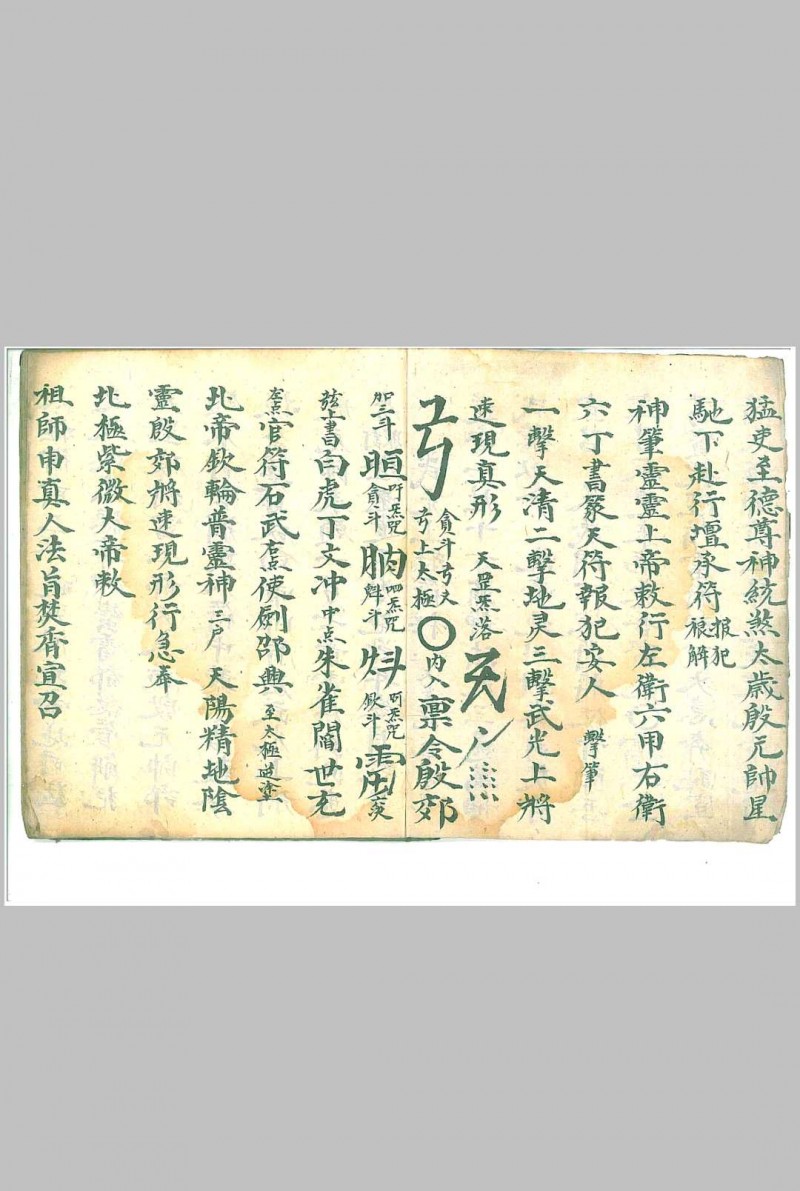 猛吏至德尊神統煞太歲殷元帥星
馳下赴行壇承符報犯禳解
神筆靈靈上帝敕行左衛六甲右衛
六丁書篆天符報犯安人 擊筆
一擊天清二擊地灵三擊武光上將
速現真形 天罡炁落
貪斗 上太極 內入 稟令殷郊
加三斗 貪斗 吽炁咒 魁斗 炁咒 炁咒
弦上書白虎丁文冲 中点朱雀閻世充
左点官符石武右点使劍邵興 至太極蓋塗
北帝欽輪普靈神 三戶 天陽精地陰
靈殷郊將速現形行急奉
北極紫微大帝敕
祖師申真人法旨焚香宣召